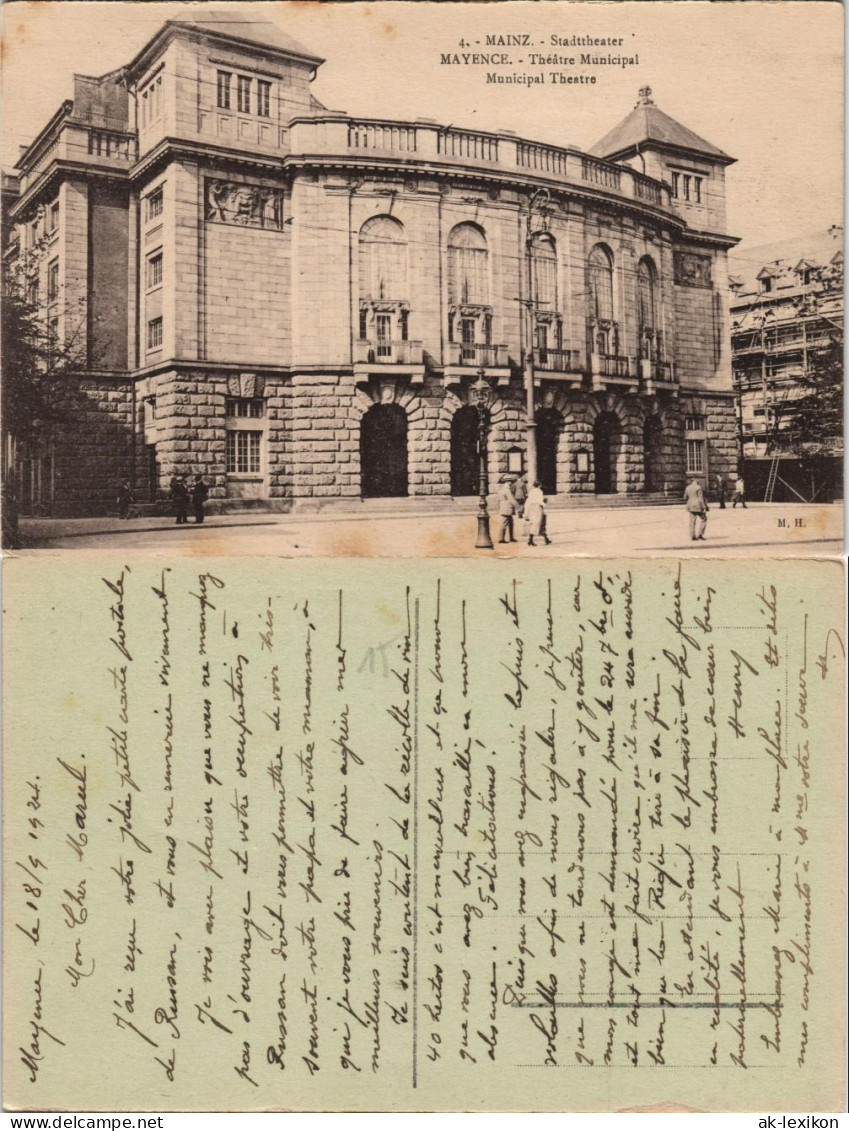 4. - MAINZ. - Stadttheater
MAYENCE. - Théâtre Municipal
Municipal Theatre
M. H.
Mayence, le 18/9 1924.
Mon Cher Marcel.
J'ai reçu votre jolie petite carte postale
de Russan, et vous en remercie vivement.
Je vois avec plaisir que vous ne manquez
pas d'ouvrage et votre occupation à
Russan doit vous permettre de voir très-
souvent votre papa et votre maman, à
qui je vous prie de faire agréer mes
meilleurs souvenirs.
Je suis content de la récolte de vin
40 hectos c'est merveilleux et ça prouve
que vous avez bien travaillé en mon
absence. Félicitations!
Puisque vous avez engraissé lapins et
volailles afin de nous régaler, je pense
que nous ne tarderons pas à y goûter, car
mon congé est demandé pour le 24 7bre
et tout me fait croire qu'il me sera accordé
bien que tire à sa fin.
En attendant le plaisir de le faire
en réalité, je vous embrasse de cœur bien
paternellement
Henry
Embrassez Marie à ma place. Et dites
mes compliments à Mme votre sœur.
ak-lexikon